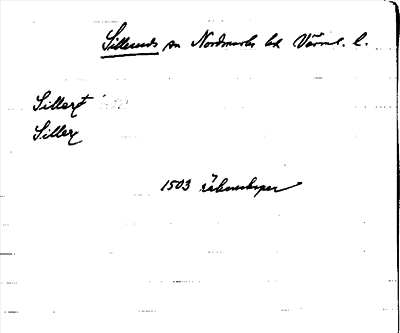 Silleruds sn Nordmarks hd Värml. l.
Sillert
Siller
1503 räkenskaper